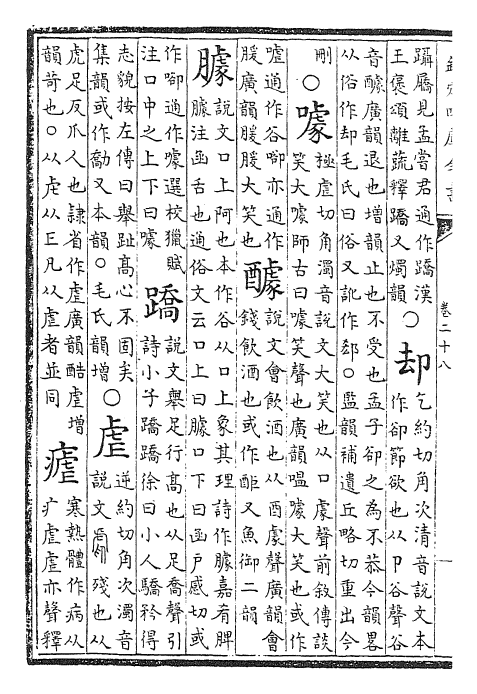 卷二十八
躡屩見孟嘗君通作蹻漢
王褒頌離蔬釋蹻又燭韻
○却
乞約切角次清音說文本
作卻節欲也从卩谷聲谷
音醵廣韻退也增韻止也不受也孟子卻之為不恭今韻畧
从俗作却毛氏曰俗又訛作郄○監韻補遺丘略切重出今
刪○噱
極虐切角濁音說文大笑也从口豦聲前敘傳談
笑大噱師古曰噱笑聲也廣韻嗢噱大笑也或作
嘘通作谷啣亦通作
廣韻大笑也
醵
說文會飲酒也从酉豦聲廣韻會
錢飲酒也或作酠又魚御二韻
臄
說文口上阿也本作谷从口上象其理詩作臄嘉肴脾
臄注函舌也通俗文云口上曰臄口下曰函戶感切或
作啣通作噱選校獵賦
注口中之上下曰噱
蹻
說文舉足行高也从足喬聲引
詩小子蹻蹻徐曰小人驕矜得
志貌按左傳曰舉趾高心不固矣
集韻或作勪又本韻○毛氏韻增
○虐
逆約切角次濁音
說文殘也从
虎足反爪人也隸省作虐廣韻酷虐增
韻苛也○从虍从凡从虐者並同
瘧
寒熱體作病从
疒虐虐亦聲釋